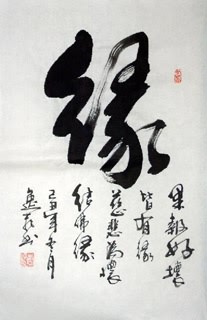 缘
果報好壞
皆有緣
慈悲為懷
結佛緣
己丑年冬月